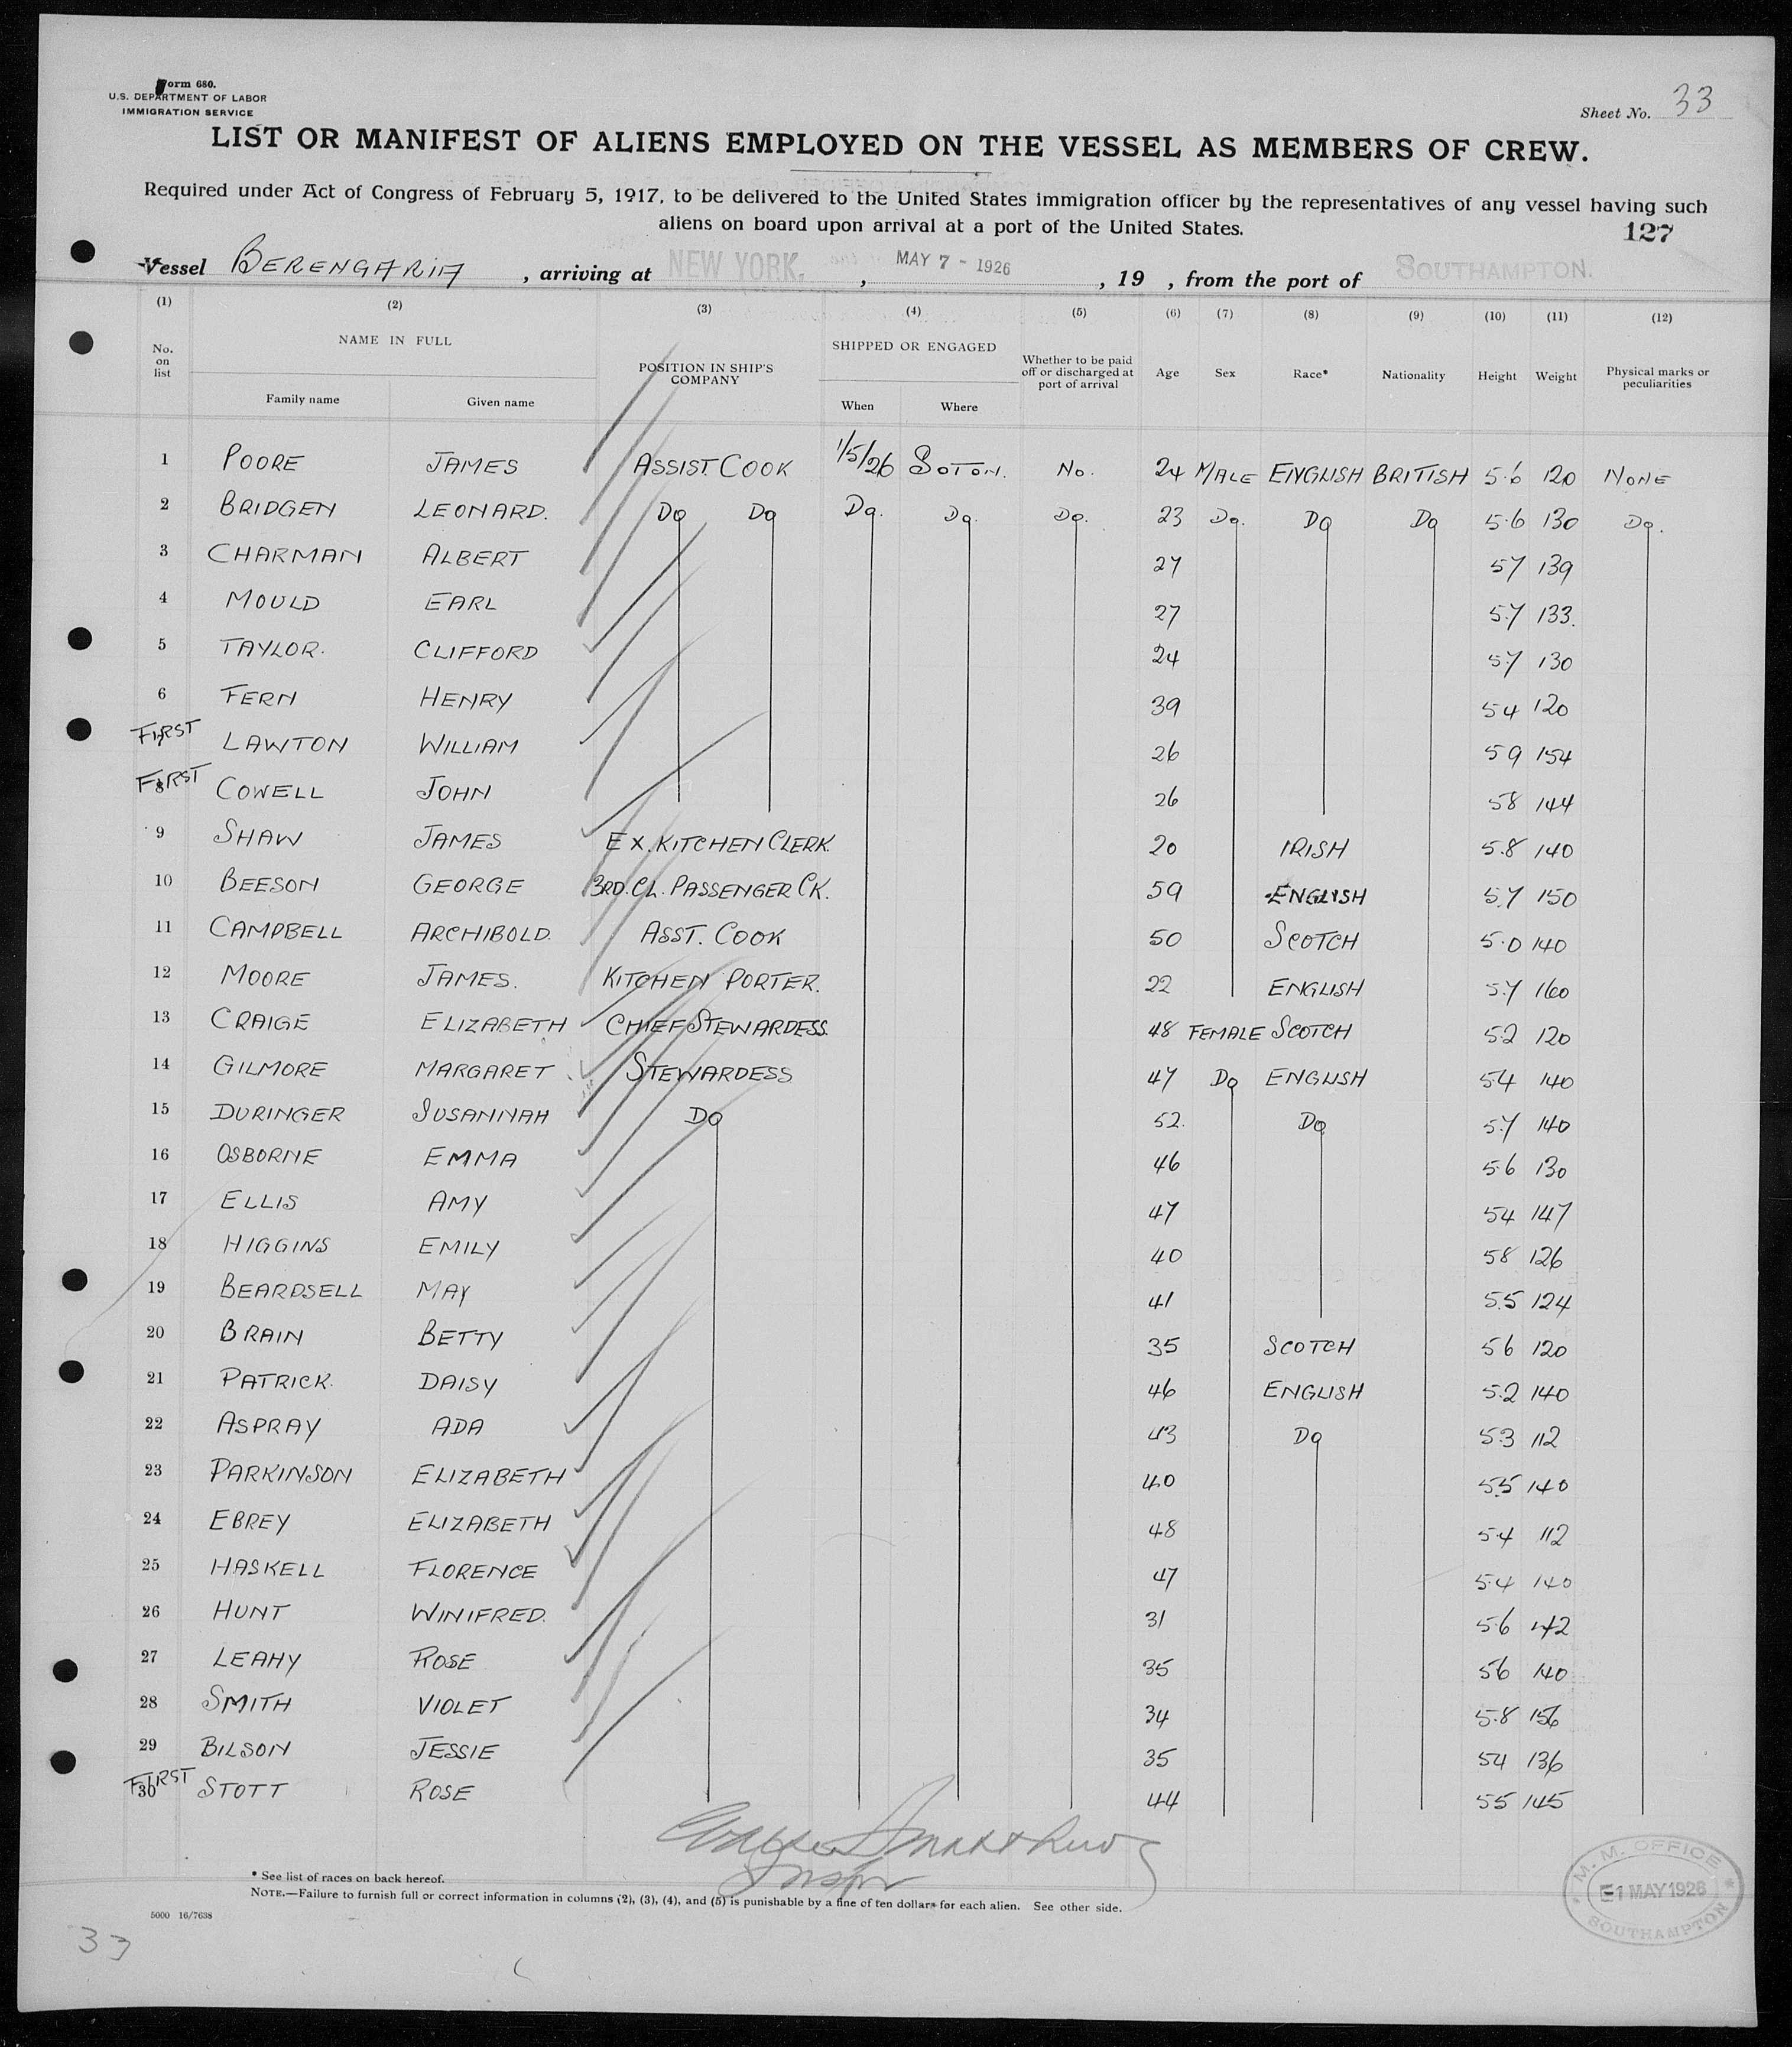 Form 680.
U.S. DEPARTMENT OF LABOR
IMMIGRATION SERVICE
Sheet No. 33
LIST OR MANIFEST OF ALIENS EMPLOYED ON THE VESSEL AS MEMBERS OF CREW.
Required under Act of Congress of February 5, 1917, to be delivered to the United States immigration officer by the representatives of any vessel having such
aliens on board upon arrival at a port of the United States.
127
Vessel BERENGARIA, arriving at NEW YORK, MAY 7 - 1926, 19 , from the port of SOUTHAMPTON.
(1) (2) (3) (4) (5) (6) (7) (8) (9) (10) (11) (12)
No. on list NAME IN FULL POSITION IN SHIP'S COMPANY SHIPPED OR ENGAGED Whether to be paid off or discharged at port of arrival Age Sex Race* Nationality Height Weight Physical marks or peculiarities
Family name Given name When Where
1 POORE JAMES ASSIST. COOK 1/5/26 SOTON. No. 24 MALE ENGLISH BRITISH 5.6 120 NONE
2 BRIDGEN LEONARD. Do Do Do. Do. Do. 23 Do. Do Do 5.6 130 Do.
3 CHARMAN ALBERT 27 57 139
4 MOULD EARL 27 5.7 133.
5 TAYLOR. CLIFFORD 24 5.7 130
6 FERN HENRY 39 54 120
FIRST 7 LAWTON WILLIAM 26 59 154
FIRST 8 COWELL JOHN 26 58 144
9 SHAW JAMES EX. KITCHEN CLERK. 20 IRISH 5.8 140
10 BEESON GEORGE 3RD. CL. PASSENGER CK. 59 ENGLISH 5.7 150
11 CAMPBELL ARCHIBOLD. ASST. COOK 50 SCOTCH 5.0 140
12 MOORE JAMES. KITCHEN PORTER. 22 ENGLISH 5.7 160
13 CRAIGE ELIZABETH CHIEF STEWARDESS. 48 FEMALE SCOTCH 5.2 120
14 GILMORE MARGARET STEWARDESS 47 Do ENGLISH 54 140
15 DURINGER SUSANNAH Do 52. Do 5.7 140
16 OSBORNE EMMA 46 5.6 130
17 ELLIS AMY 47 54 147
18 HIGGINS EMILY 40 58 126
19 BEARDSELL MAY 41 5.5 124
20 BRAIN BETTY 35 SCOTCH 56 120
21 PATRICK. DAISY 46 ENGLISH 5.2 140
22 ASPRAY ADA 43 Do 5.3 112
23 PARKINSON ELIZABETH 40 5.5 140
24 EBREY ELIZABETH 48 5.4 112
25 HASKELL FLORENCE 47 5.4 140
26 HUNT WINIFRED. 31 5.6 142
27 LEAHY ROSE 35 56 140
28 SMITH VIOLET 34 5.8 156
29 BILSON JESSIE 35 54 136
FIRST 30 STOTT ROSE 44 55 145
* See list of races on back hereof.
NOTE.—Failure to furnish full or correct information in columns (2), (3), (4), and (5) is punishable by a fine of ten dollars for each alien. See other side.
5000 16/7638
M. M. OFFICE
E-1 MAY 1926
SOUTHAMPTON
33